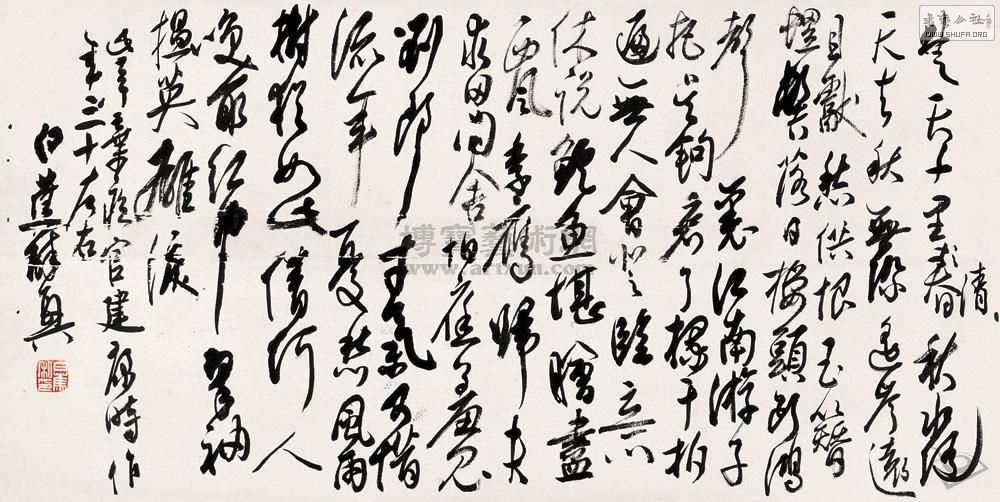 楚天千里暮秋水隨
清
天去秋無際遙岑遠
目獻愁供恨玉簪
螺髻落日樓頭斷鴻
聲裏江南游子
把吳鉤看了欄干拍
遍無人會登臨意
休說鱸魚堪膾盡
西風季鷹歸未
求田問舍怕應羞見
劉郎才氣可惜
流年憂愁風雨
樹猶如此倩何人
喚取紅巾翠袖
搵英雄淚
此辛棄疾官建康時作
年三十左右
白蕉醉興
博寶藝術網
www.artxun.com
WWW.SHUFA.ORG